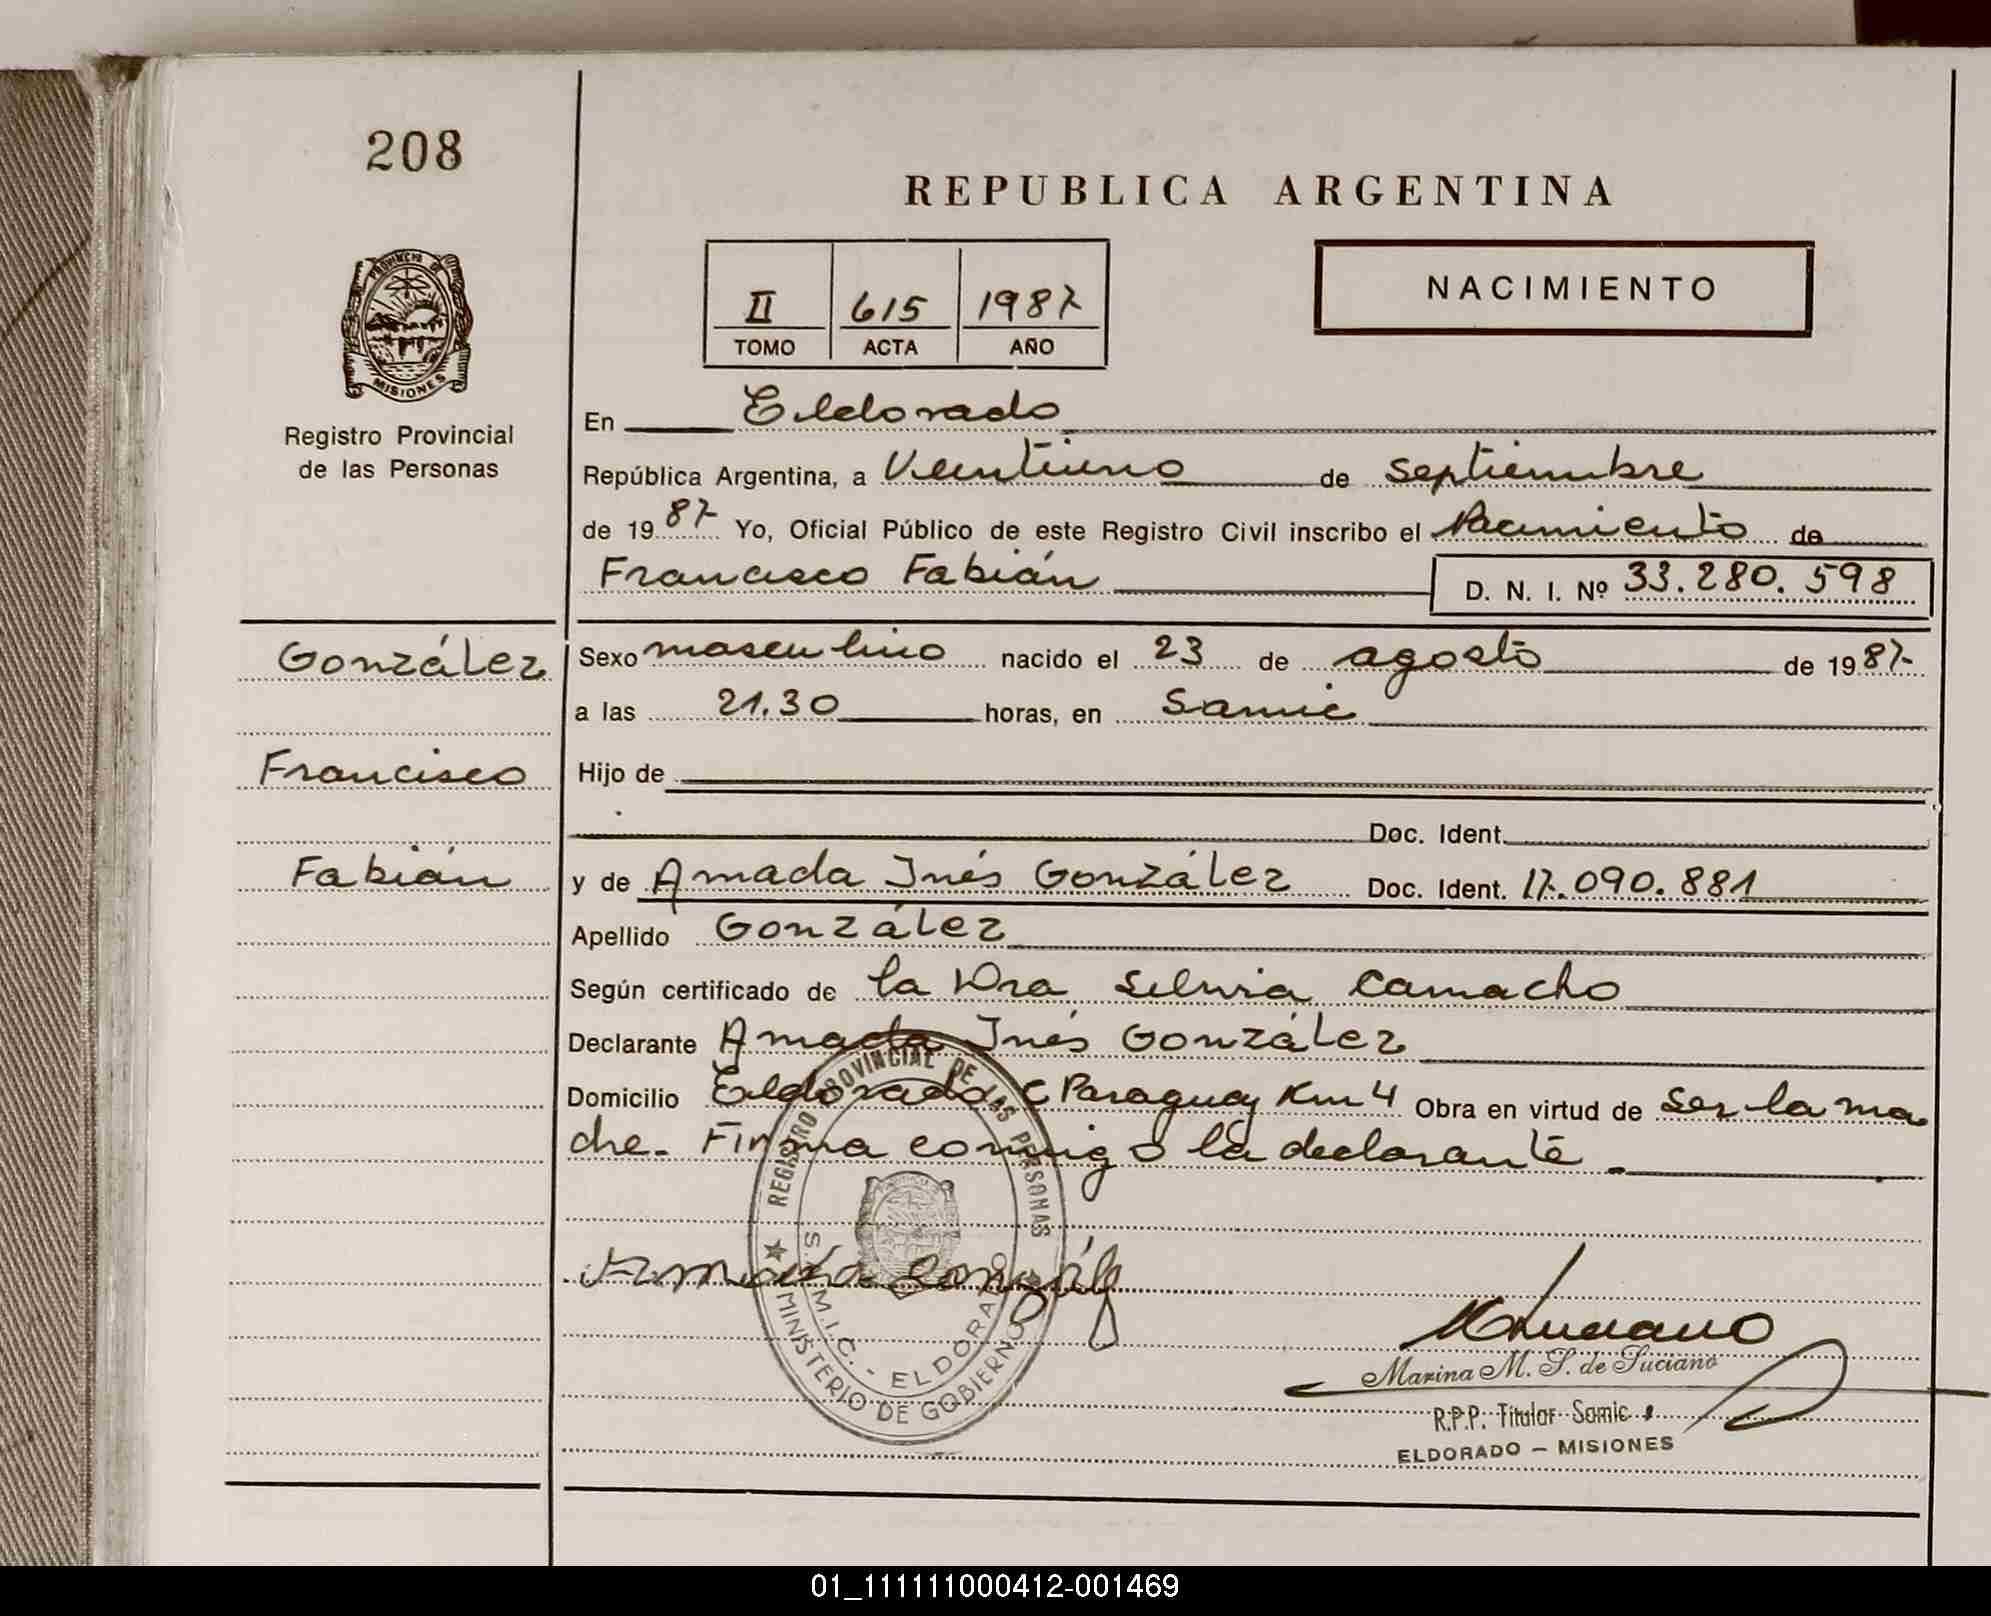 208
REPUBLICA ARGENTINA
PROVINCIA DE
MISIONES
Registro Provincial
de las Personas
II 615 1987
TOMO ACTA AÑO
NACIMIENTO
En Eldorado
República Argentina, a Veintiuno de septiembre
de 1987 Yo, Oficial Público de este Registro Civil inscribo el Nacimiento de
Francisco Fabián D. N. I. Nº 33.280.598
González
Francisco
Fabián
Sexo masculino nacido el 23 de agosto de 1987
a las 21.30 horas, en Samic
Hijo de
Doc. Ident.
y de Amada Inés González Doc. Ident. 17.090.881
Apellido González
Según certificado de la Dra Silvia Camacho
Declarante Amada Inés González
Domicilio Eldorado C Paraguay Km 4 Obra en virtud de ser la ma
dre. Firma conmigo la declarante.
REGISTRO PROVINCIAL DE LAS PERSONAS
S.A.M.I.C. - ELDORADO
MINISTERIO DE GOBIERNO
Amada González
Marina M. S. de Luciano
R.P.P. Titular Samic
ELDORADO - MISIONES
01_111111000412-001469